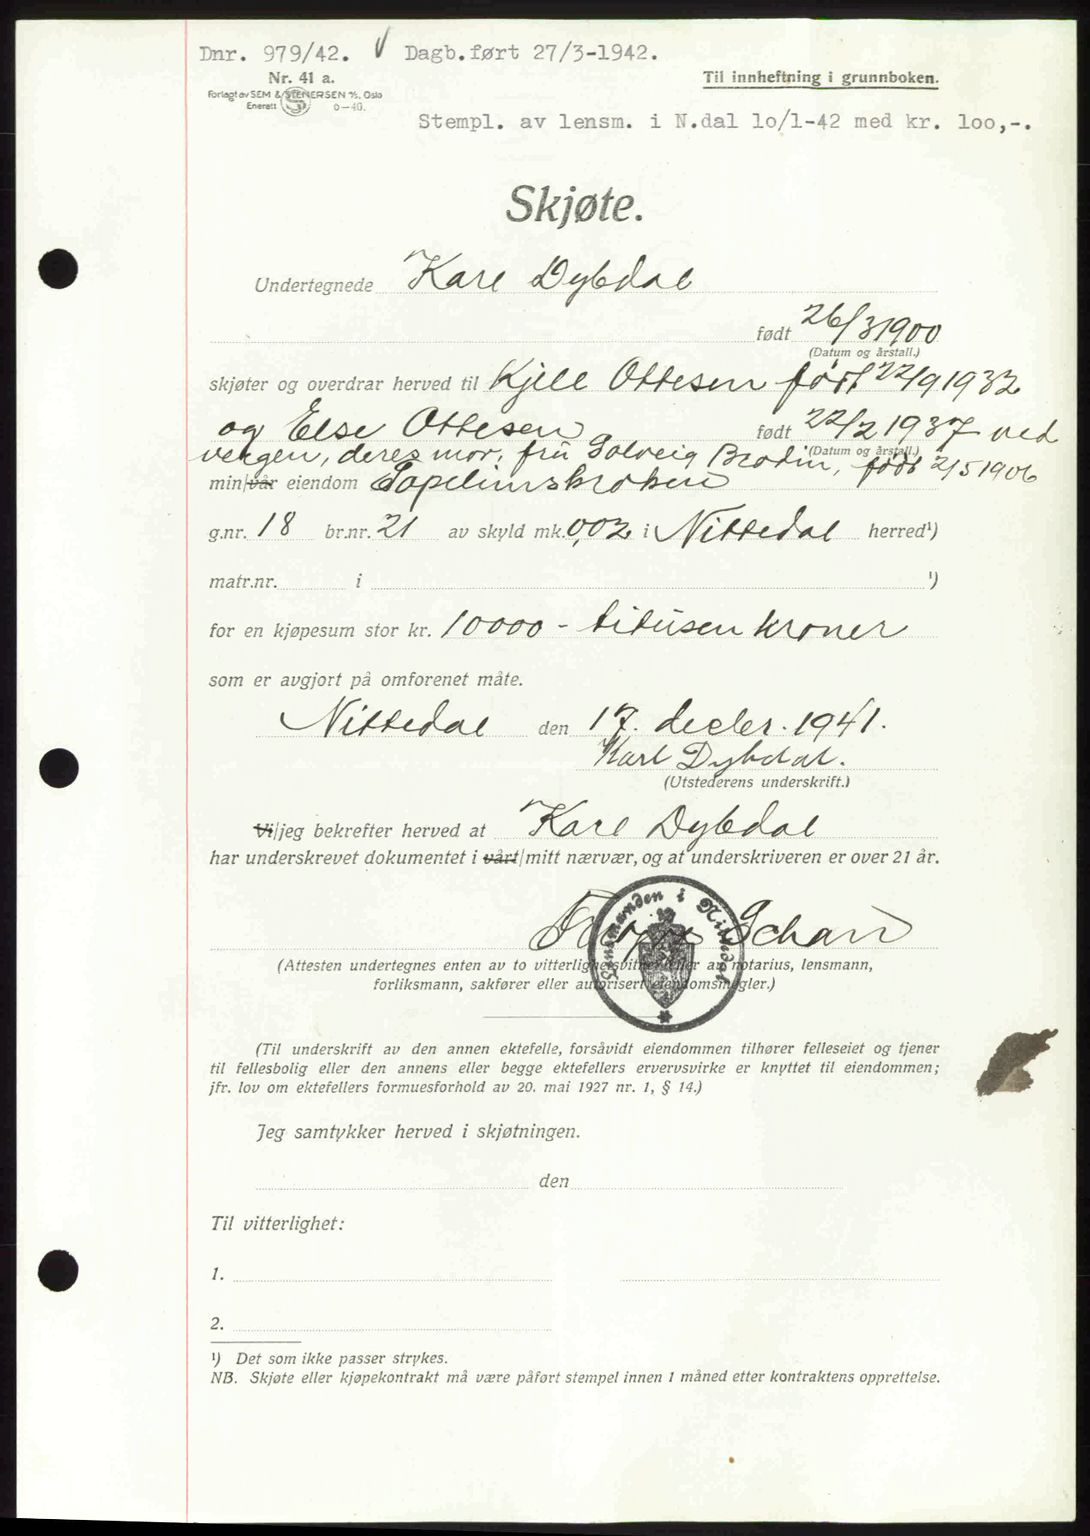 Dnr. 979/42. V Dagb.ført 27/3-1942.
Nr. 41 a.
Til innheftning i grunnboken.
Forlagt av SEM & STENERSEN A/S, Oslo
Enerett 6—40.
Stempl. av lensm. i N.dal 10/1-42 med kr. 100,-.
Skjøte.
Undertegnede Kare Dybdal
født 26/3 1900
(Datum og årstall.)
skjøter og overdrar herved til Kjell Ottesen født 22/9 1932
og Else Ottesen født 22/2 1937 ved
(Datum og årstall.)
vergen, deres mor, fru Solveig Brodin, født 2/5 1906
min/vår eiendom
g.nr. 18 br.nr. 21 av skyld mk. 0,02 i Nittedal herred¹)
matr.nr. i ¹)
for en kjøpesum stor kr. 10000 - titusen kroner
som er avgjort på omforenet måte.
Nittedal den 17. decbr. 1941.
Karl Dybdal.
(Utstederens underskrift.)
Vi/jeg bekrefter herved at Kare Dybdal
har underskrevet dokumentet i vårt/mitt nærvær, og at underskriveren er over 21 år.
Lensmanden i Nittedal
(Attesten undertegnes enten av to vitterlighetsvitner eller av notarius, lensmann,
forliksmann, sakfører eller autorisert eiendomsmegler.)
(Til underskrift av den annen ektefelle, forsåvidt eiendommen tilhører felleseiet og tjener
til fellesbolig eller den annens eller begge ektefellers ervervsvirke er knyttet til eiendommen;
jfr. lov om ektefellers formuesforhold av 20. mai 1927 nr. 1, § 14.)
Jeg samtykker herved i skjøtningen.
den
Til vitterlighet:
1.
2.
¹) Det som ikke passer strykes.
NB. Skjøte eller kjøpekontrakt må være påført stempel innen 1 måned etter kontraktens opprettelse.